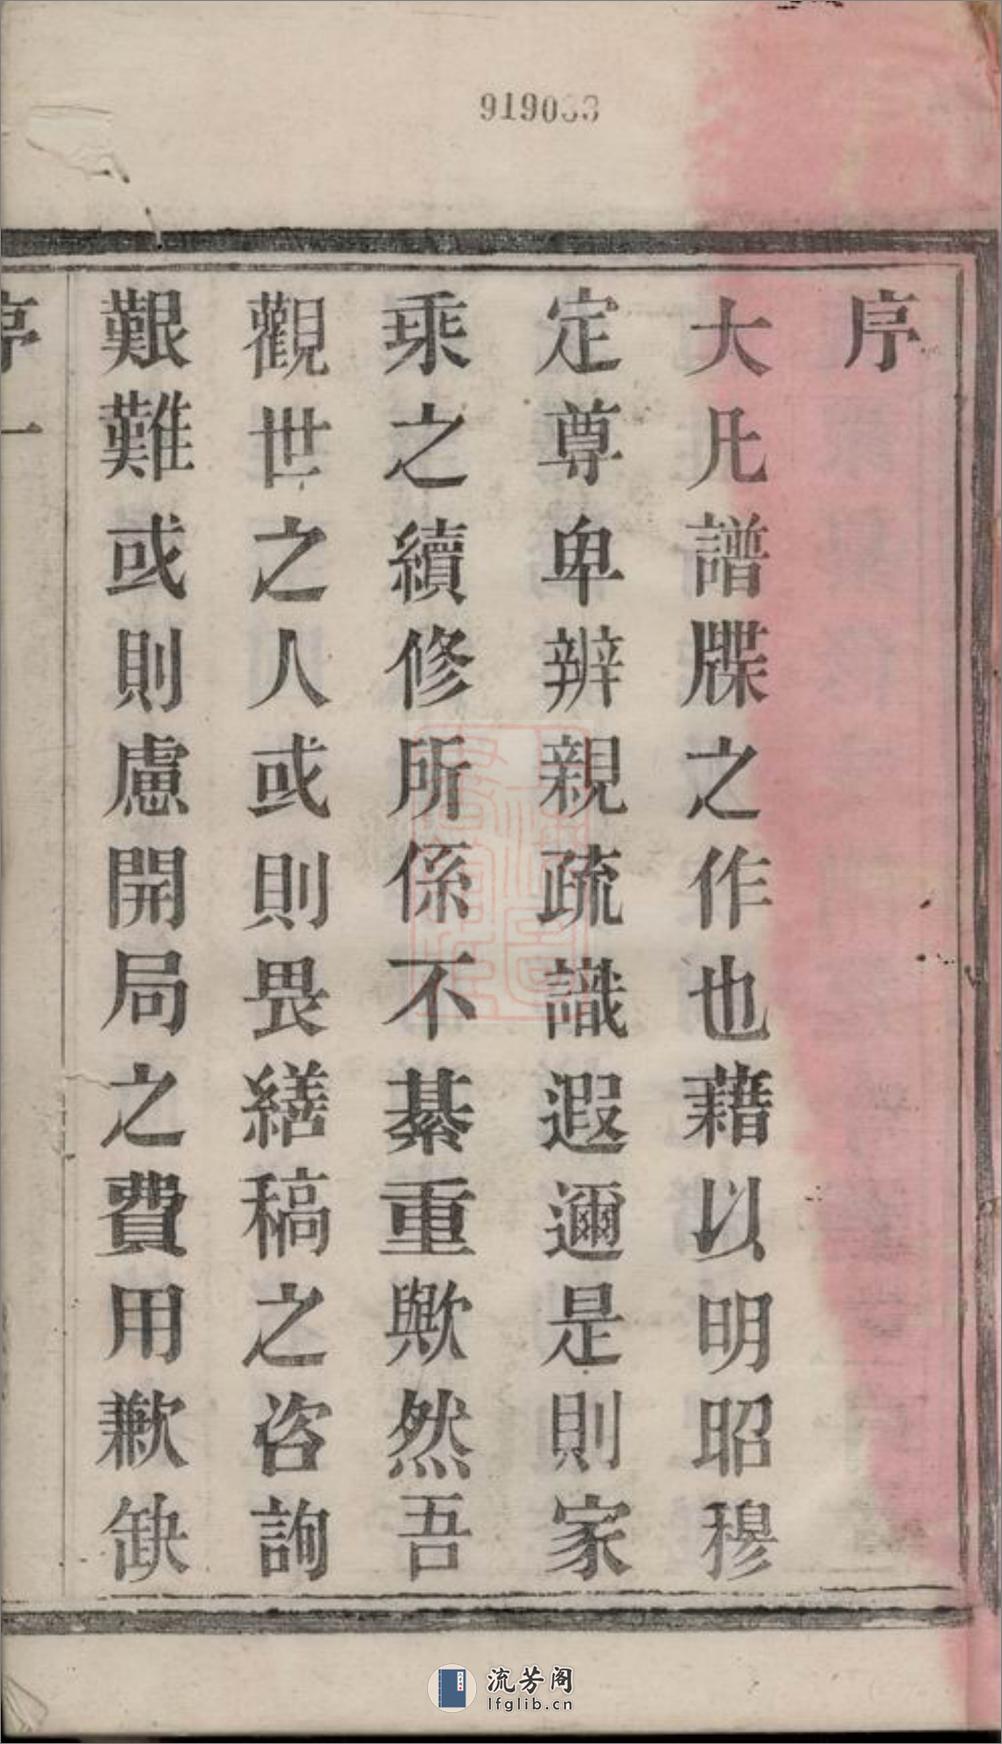 919033
序
大凡譜牒之作也藉以明昭穆
定尊卑辨親疏識遐邇是則家
乘之續修所係不綦重歟然吾
觀世之人或則畏繕稿之咨詢
艱難或則慮開局之費用歉缺
序一
流芳阁
lfglib.cn